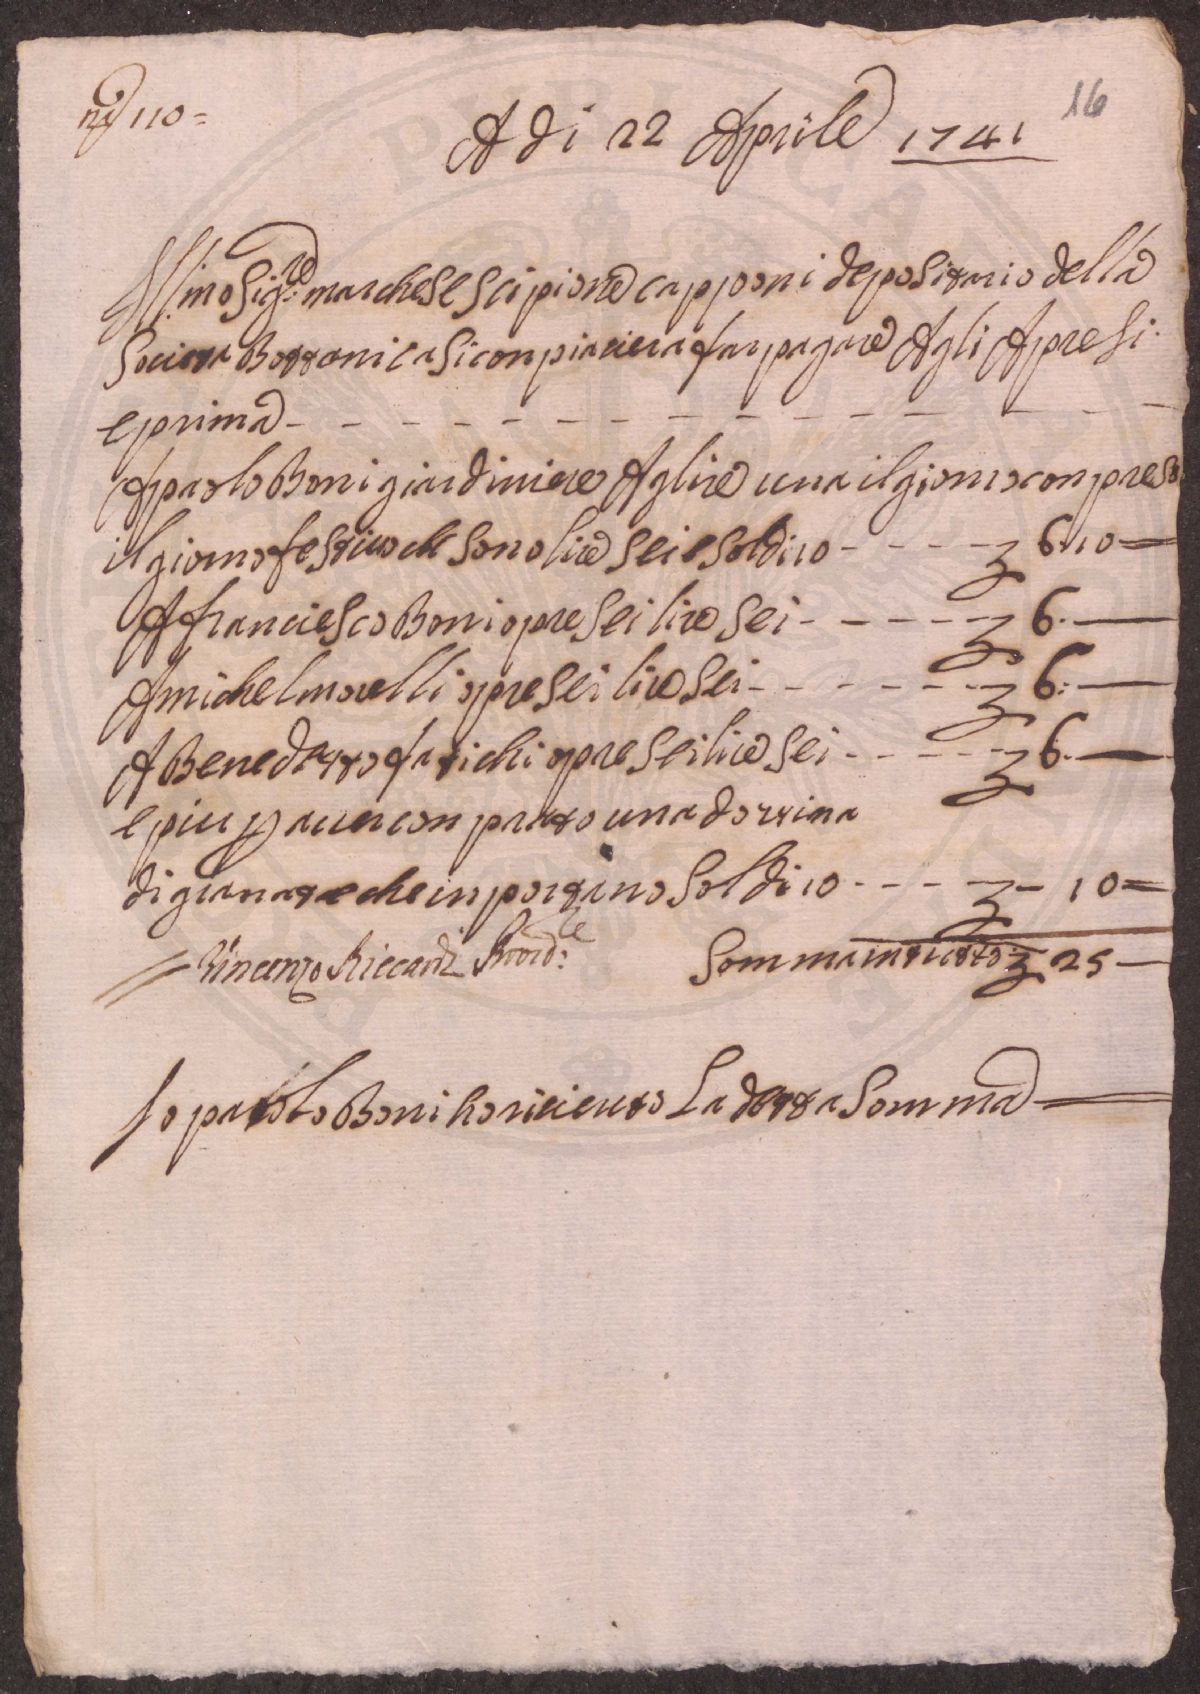 no 110=
16
A di 22 Aprile 1741
Ill.mo Sig:re marchese scipione capponi depositario della
Societa Bottanica si conpiaciera far pagare Agli Apresi.
e prima - - - - - - - - - - - - - - -
A paolo Boni giardiniere A lire una il giorno conpreso
il giorno festivo che sono lire sei e soldi 10 - - - - £ 6.10=
A franciesco Boni opre sei lire sei - - - - - £ 6.—
A michel morelli opre sei lire sei - - - - - - £ 6:—
A Benedetto fatichi opre sei lire sei - - - - - £ 6.—
e piu p aver conprato una dozzina
di granate che inportano soldi 10 - - - - £ - 10=
Vincenzo Riccardi Provd:re Somma in tutto £ 25—
Io paolo Boni ho riceuto La detta Somma